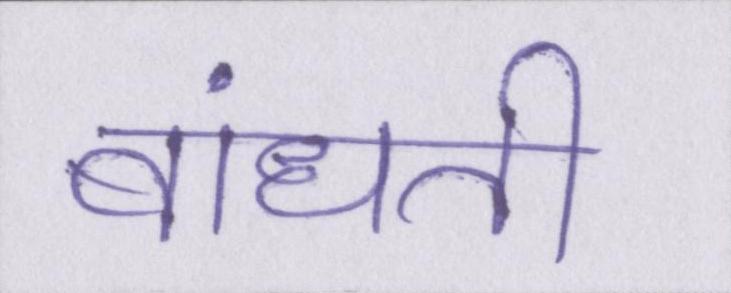 बांधती